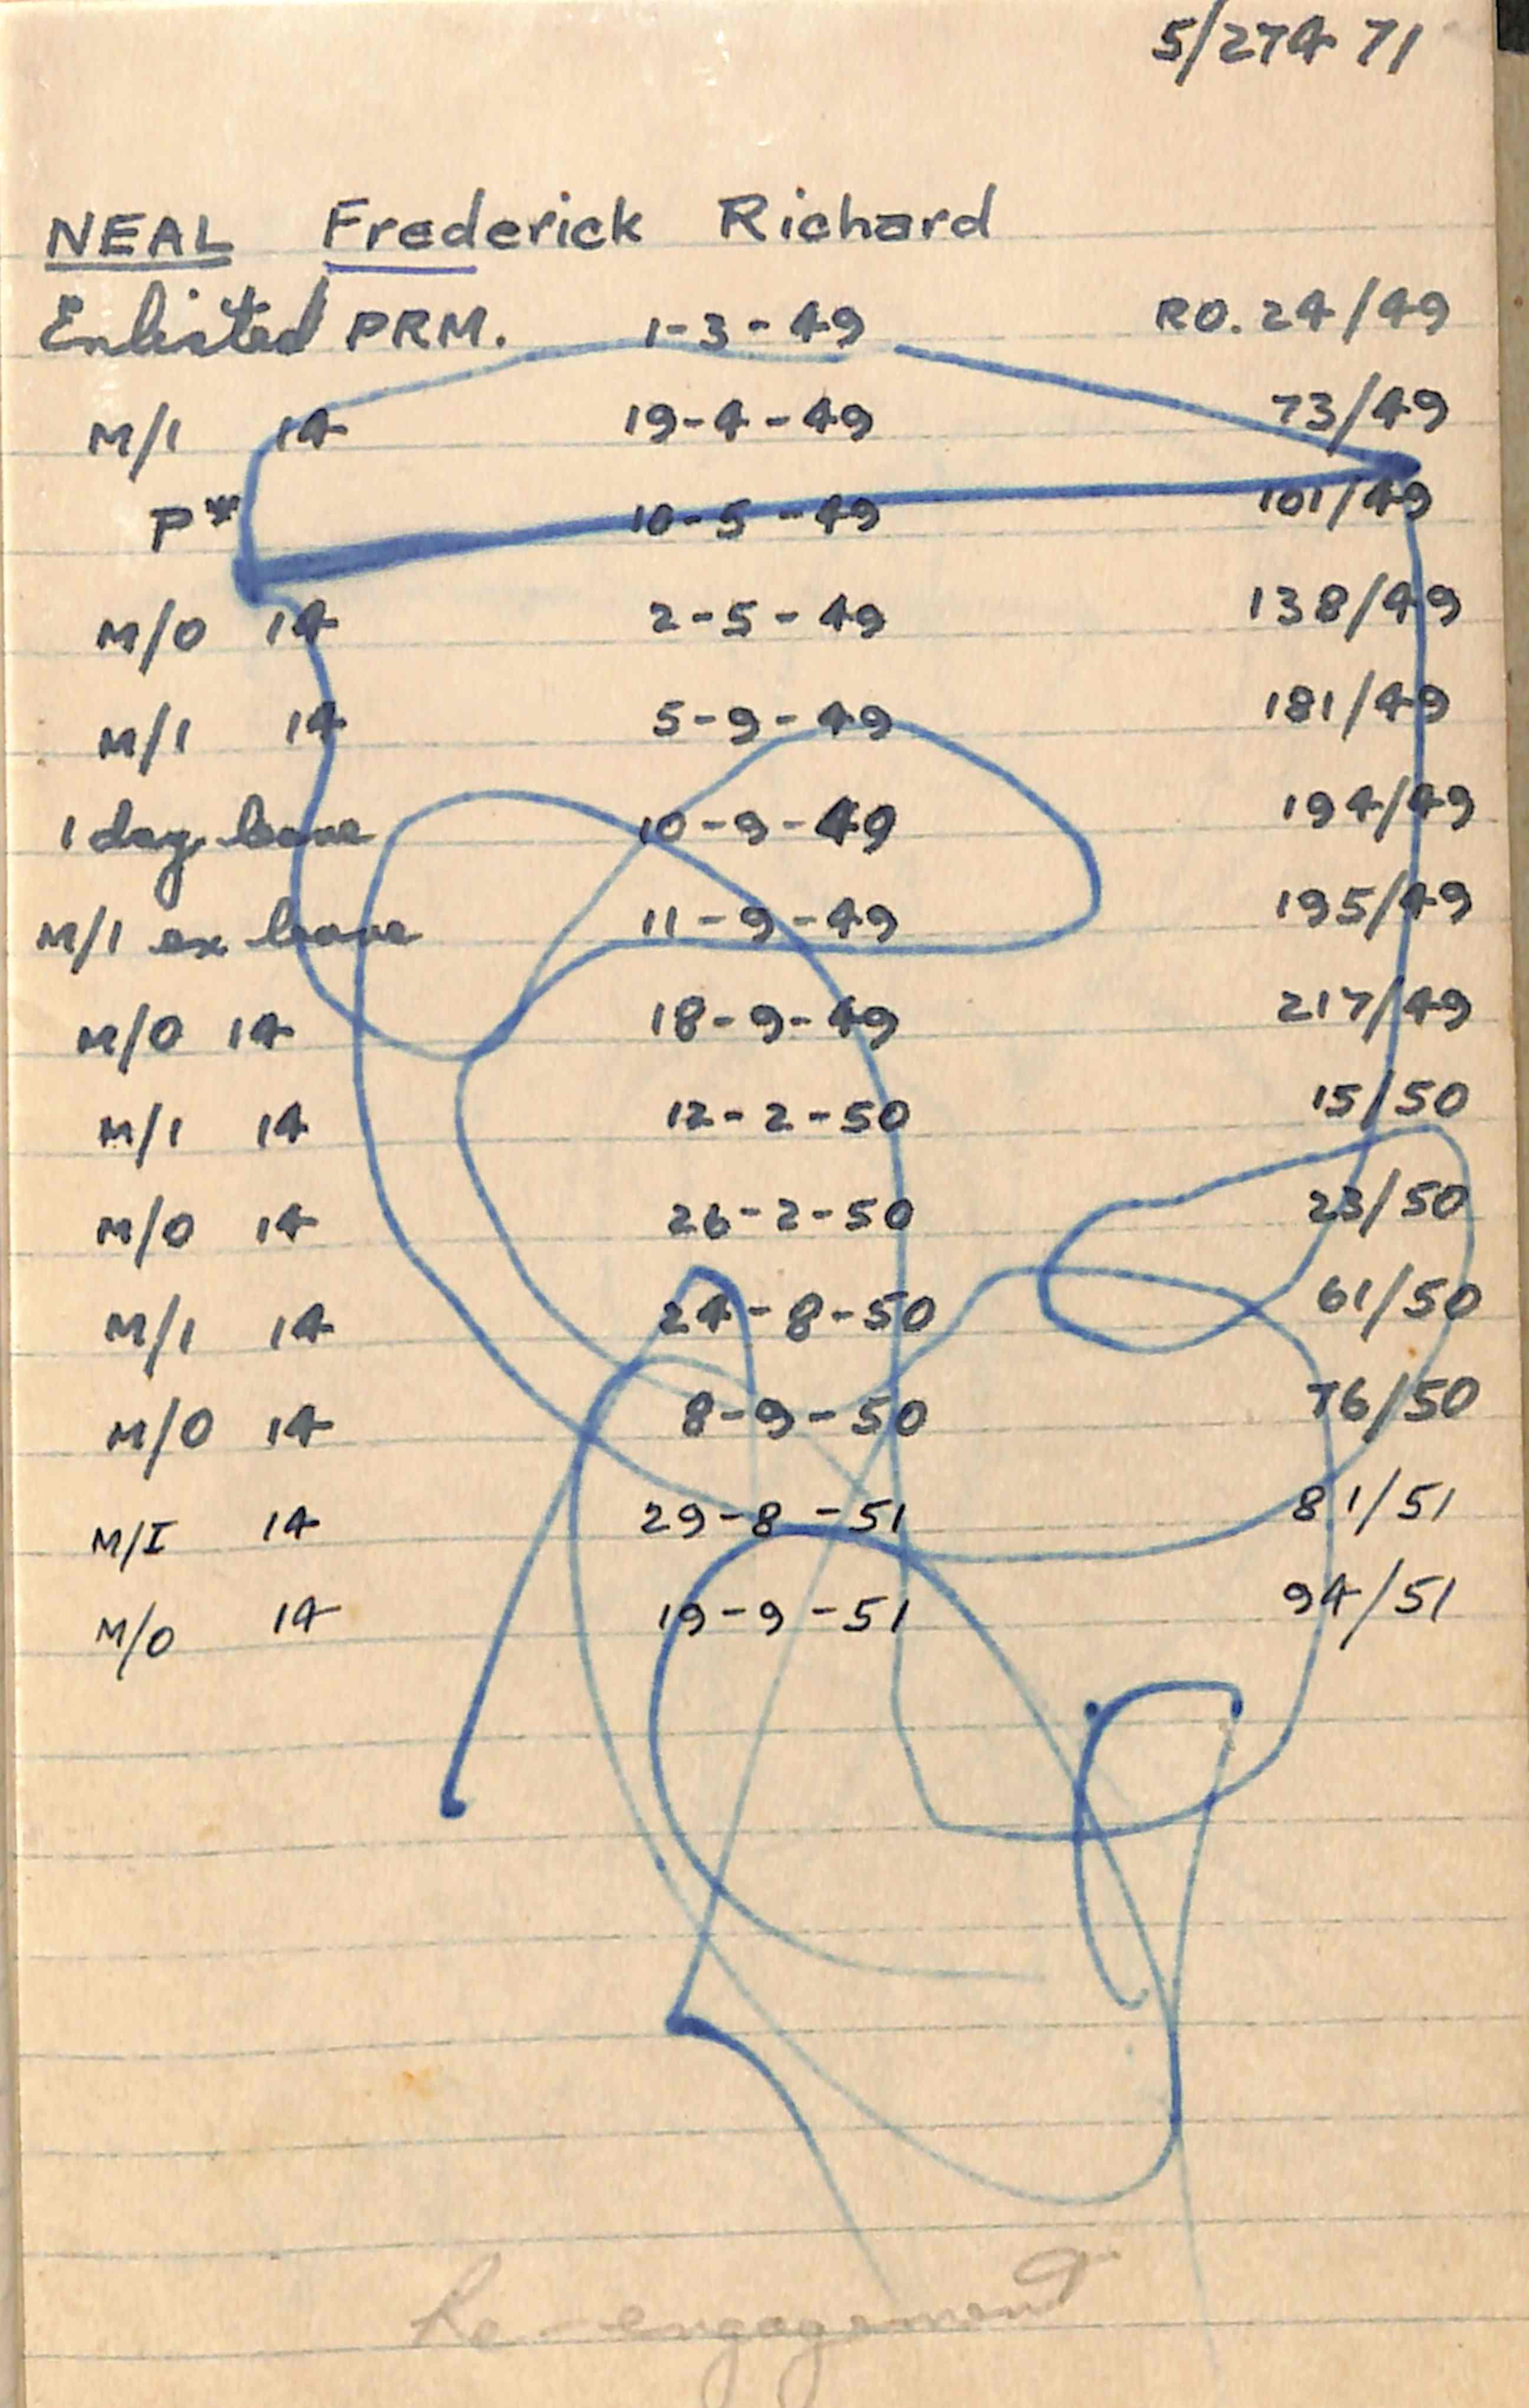 5/274 71
NEAL Frederick Richard
Enlisted PRM. 1-3-49 RO. 24/49
M/1 14 19-4-49 73/49
10-5-49 101/49
M/O 14 2-5-49 138/49
M/1 14 5-9-49 181/49
1 day leave 10-9-49 194/49
M/1 ex leave 11-9-49 195/49
M/O 14 18-9-49 217/49
M/1 14 12-2-50 15/50
M/O 14 26-2-50 23/50
M/1 14 24-8-50 61/50
M/O 14 8-9-50 76/50
M/I 14 29-8-51 81/51
M/O 14 19-9-51 94/51
Re-engagement